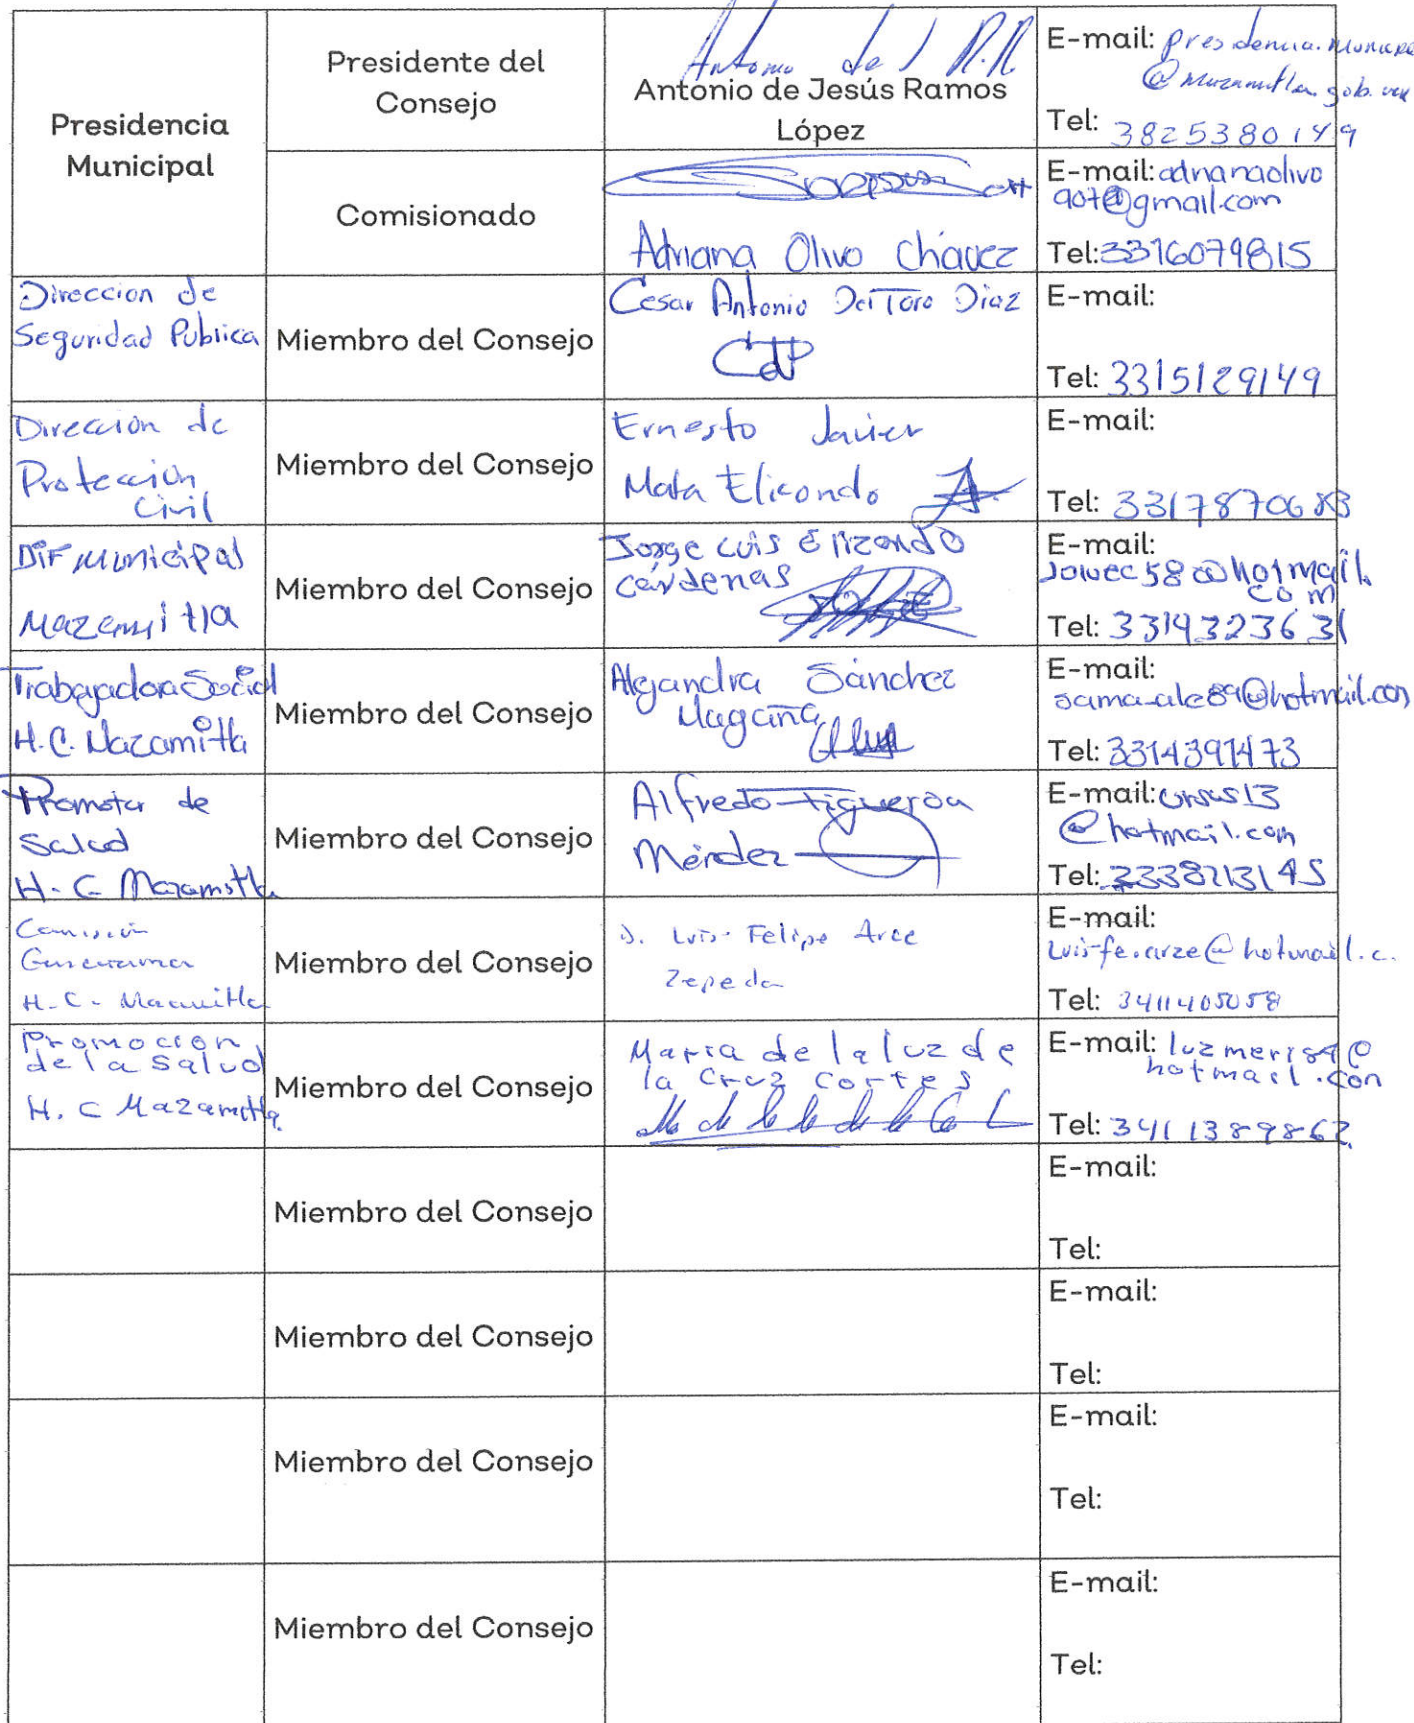 Presidencia
Municipal
Presidente del
Consejo
Antonio de J R.R
Antonio de Jesús Ramos
López
E-mail: presidencia.
@mazamitla.gob.mx
Tel: 3825380149
Comisionado
Adriana Olivo Chávez
E-mail: adrianaolivo
907@gmail.com
Tel: 3316079815
Direccion de
Seguridad Publica
Miembro del Consejo
Cesar Antonio Del Toro Diaz
CdP
E-mail:
Tel: 3315129149
Dirección de
Protección
Civil
Miembro del Consejo
Ernesto Javier
Mata Elicondo
E-mail:
Tel: 3317870683
DIF Municipal
Mazamitla
Miembro del Consejo
Jorge Luis Elizondo
Cárdenas
E-mail:
Joluec58@hotmail.
com
Tel: 3319323631
Trabajadora Social
H.C. Mazamitla
Miembro del Consejo
Alejandra Sánchez
Magaña
E-mail:
sama_ale89@hotmail.com
Tel: 3314391473
Promotor de
Salud
H.C Mazamitla
Miembro del Consejo
Alfredo Figueroa
Méndez
E-mail: ursus13
@hotmail.com
Tel: 3338213145
Comisión
H.C. Mazamitla
Miembro del Consejo
Luis Felipe Arce
Zepeda
E-mail:
Luis-fe.arze@hotmail.c.
Tel: 3411405058
Promocion
de la Salud
H.C Mazamitla.
Miembro del Consejo
Maria de la luz de
la Cruz Cortes
E-mail: luzmeri84@
hotmail.com
Tel: 3411389862
Miembro del Consejo
E-mail:
Tel:
Miembro del Consejo
E-mail:
Tel:
Miembro del Consejo
E-mail:
Tel:
Miembro del Consejo
E-mail:
Tel: